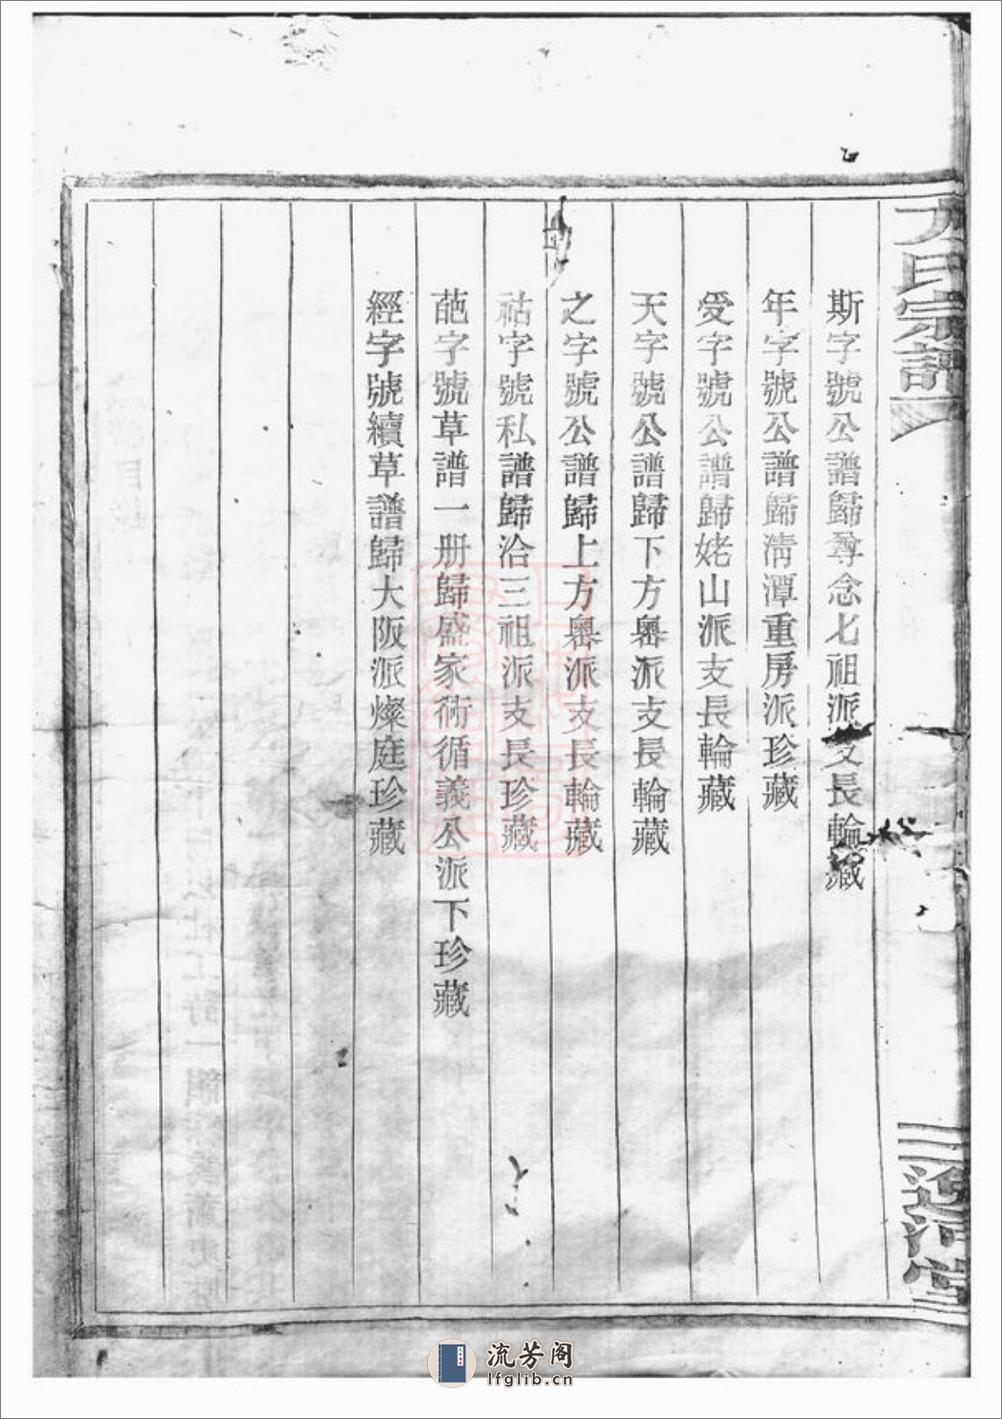 方氏宗譜
斯字號公譜歸尊念七祖派支長輪藏
年字號公譜歸清潭重房派珍藏
受字號公譜歸姥山派支長輪藏
天字號公譜歸下方粵派支長輪藏
之字號公譜歸上方粵派支長輪藏
祜字號私譜歸洽三祖派支長珍藏
葩字號草譜一册歸盛家術循義公派下珍藏
經字號續草譜歸大阪派燦庭珍藏
流芳阁
lfglib.cn